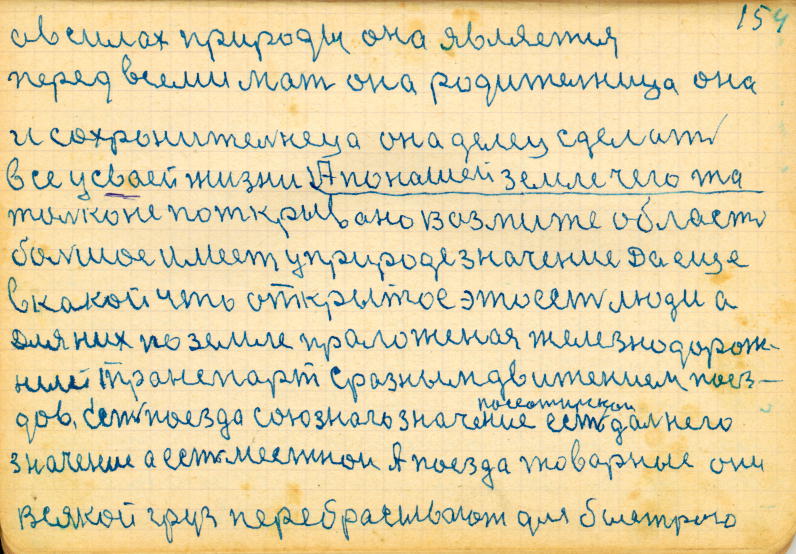 154
овсилах природы она является
перед всеми мат она родителница она
и сохронителнеца она делец сделать
все усваей жизни А понашей земле чего та
толконе поткрывано возмите область
болшое имеет уприроде значение Да еще
вкакой четь открытое это есть люди а
для них по земле праложеная железнодорож-
ный транспарт сразным движением поез-
дов, есть поезда союзнаго значение есть далнего
значение а есть местнои А поезда товарные они
всякой груз перебрасывают для быстрого